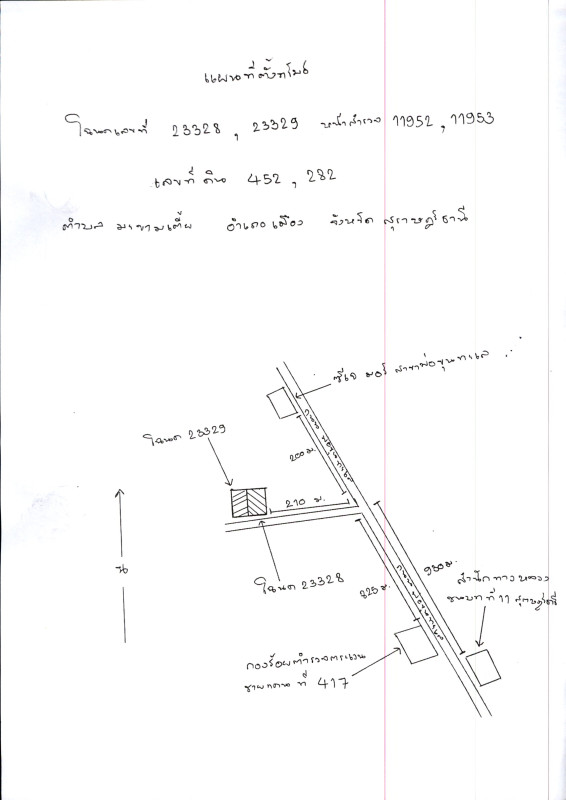 แผนที่ตั้งทโมร
โฉนดเลขที่ 23328 , 23329 หน้าสำรวจ 11952 , 11953
เลขที่ดิน 452 , 282
ตำบล มะขามเตี้ย อำเภอเมือง จังหวัด สุราษฎร์ธานี
ซีเจ มอร์ สาขาพ่อขุนทะเล
ถนน พ่อขุนทะเล
โฉนด 23329
200 ม.
210 ม.
น
โฉนด 23328
825 ม.
ถนน พ่อขุนทะเล
950 ม.
สำนักทางหลวง
ชนบทที่ 11 สุราษฎร์ธานี
กองร้อยตำรวจตระเวน
ชายแดน ที่ 417